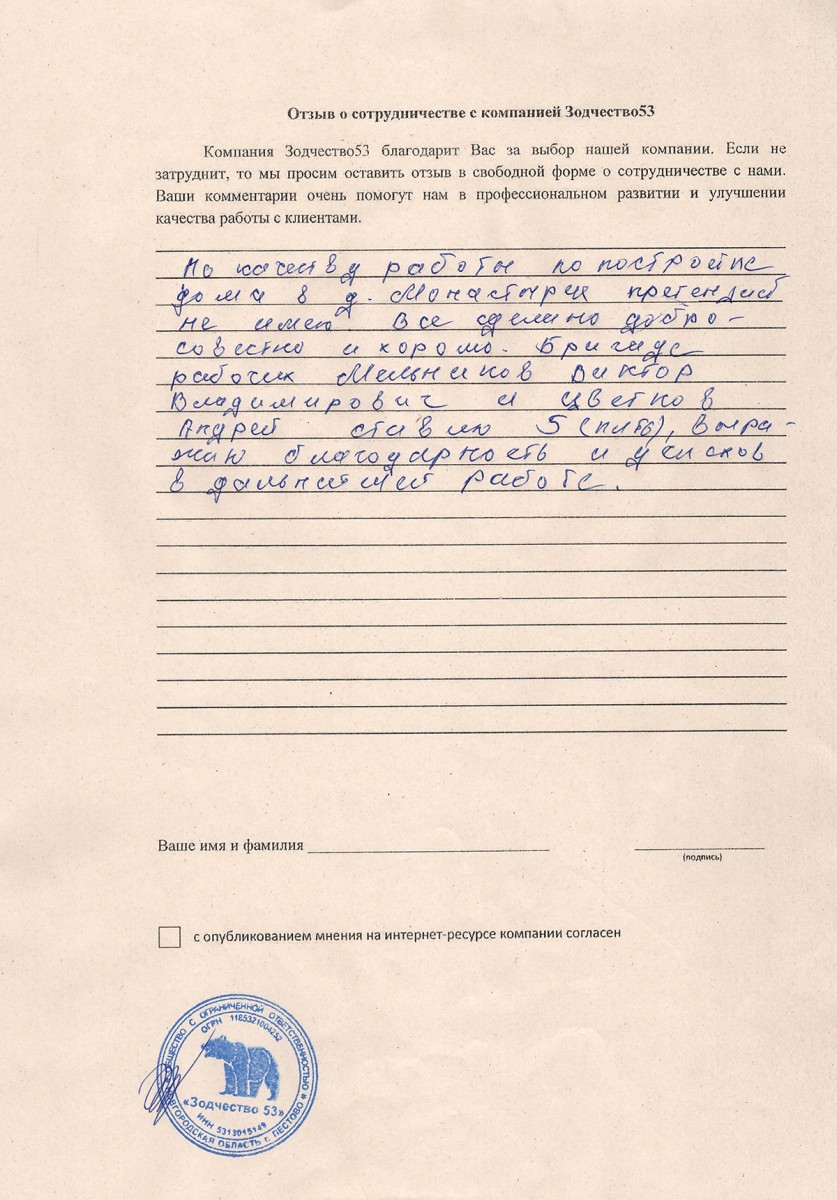 Отзыв о сотрудничестве с компанией Зодчество53
Компания Зодчество53 благодарит Вас за выбор нашей компании. Если не
затруднит, то мы просим оставить отзыв в свободной форме о сотрудничестве с нами.
Ваши комментарии очень помогут нам в профессиональном развитии и улучшении
качества работы с клиентами.
По качеству работы по постройке
дома в д. Монастырек претензий
не имею. Все сделано добро-
совестно и хорошо. Бригаде
рабочих Мельников Виктор
Владимирович и Цветков
Андрей ставлю 5 (пять), выра-
жаю благодарность и успехов
в дальнейшей работе.
Ваше имя и фамилия
(подпись)
с опубликованием мнения на интернет-ресурсе компании согласен
ОБЩЕСТВО С ОГРАНИЧЕННОЙ ОТВЕТСТВЕННОСТЬЮ
ОГРН 1185321004252
«Зодчество 53»
ИНН 5313015149
НОВГОРОДСКАЯ ОБЛАСТЬ г. ПЕСТОВО